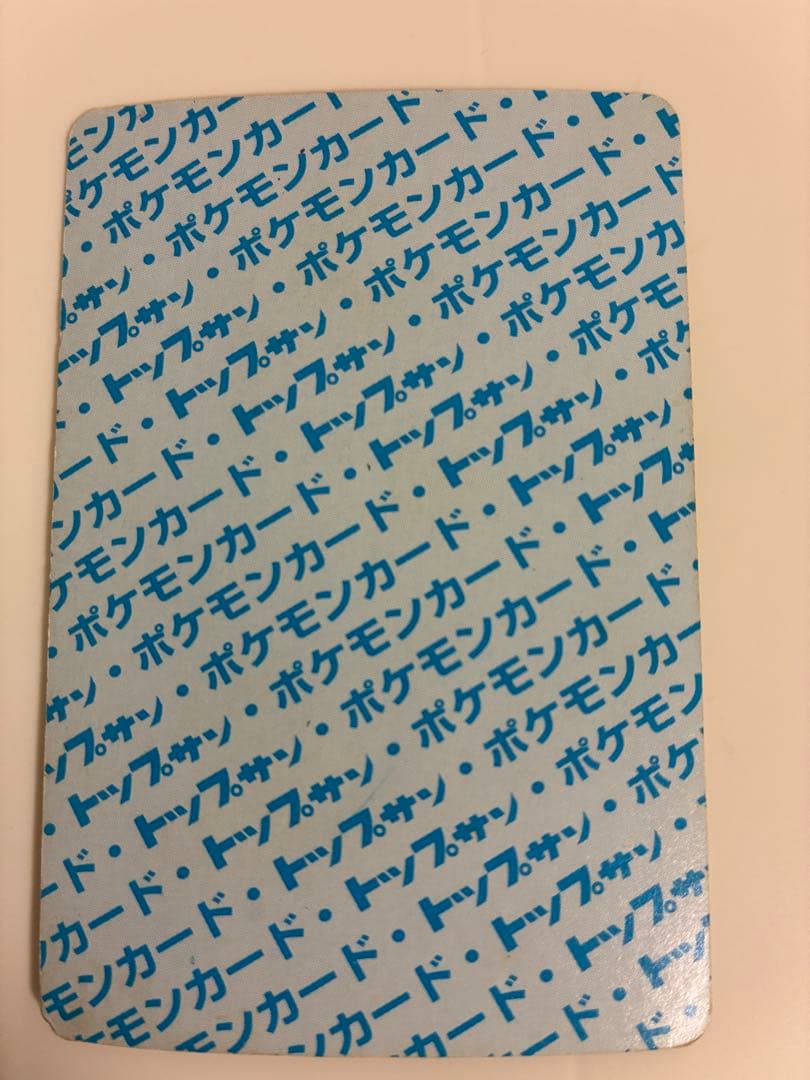 モンカード
ポケモンカード・
・ポケモンカード・ト
・ポケモンカード・ト
トップサン・ポケモンカード・
トップサン・ポケモンカード
・トップサン・ポケモンカード
・トップサン・ポケモンカ
ード・トップサン・ポケモン
ンカード・トップサン・ポケ
ケモンカード・トップサン・ポ
・ポケモンカード・トップサン
・ポケモンカード・トップ
サン・ポケモンカード・ト
トップサン・ポケモンカード・
・トップサン・ポケモンカー
ード・トップサン・ポケモン
カード・トップサン・ポケ
モンカード・トップサン・
ケモンカード・トップサン
モンカード・トップ
カード・ト
ド・